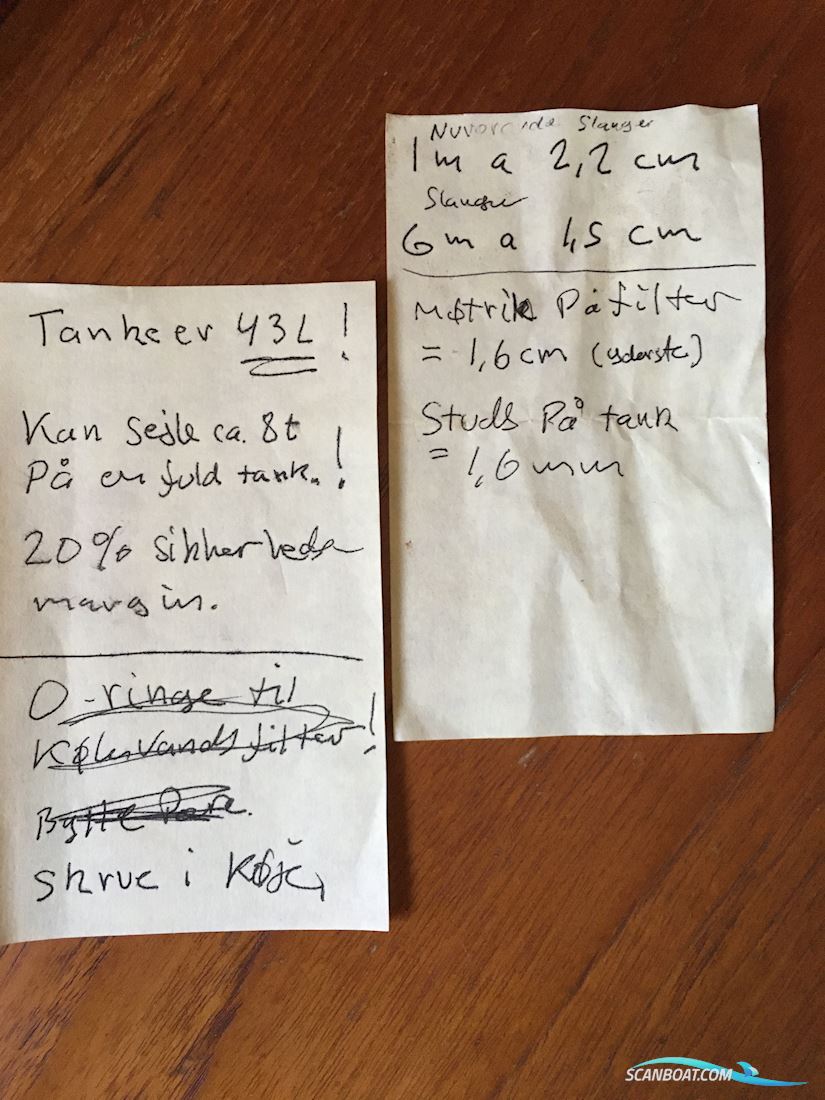 Tanke er 43L!
Kan sejle ca. 8t
På en fuld tank.!
20% sikkerheds
margin.
O-ringe til
Kølevandsfilter!
Bytte Pære.
skrue i Køje
Slanger
1m a 2,2 cm
Slanger
6m a 1,5 cm
Møtrik På filter
= 1,6cm (yderste)
Studs På tank
= 1,6mm
SCANBOAT.COM